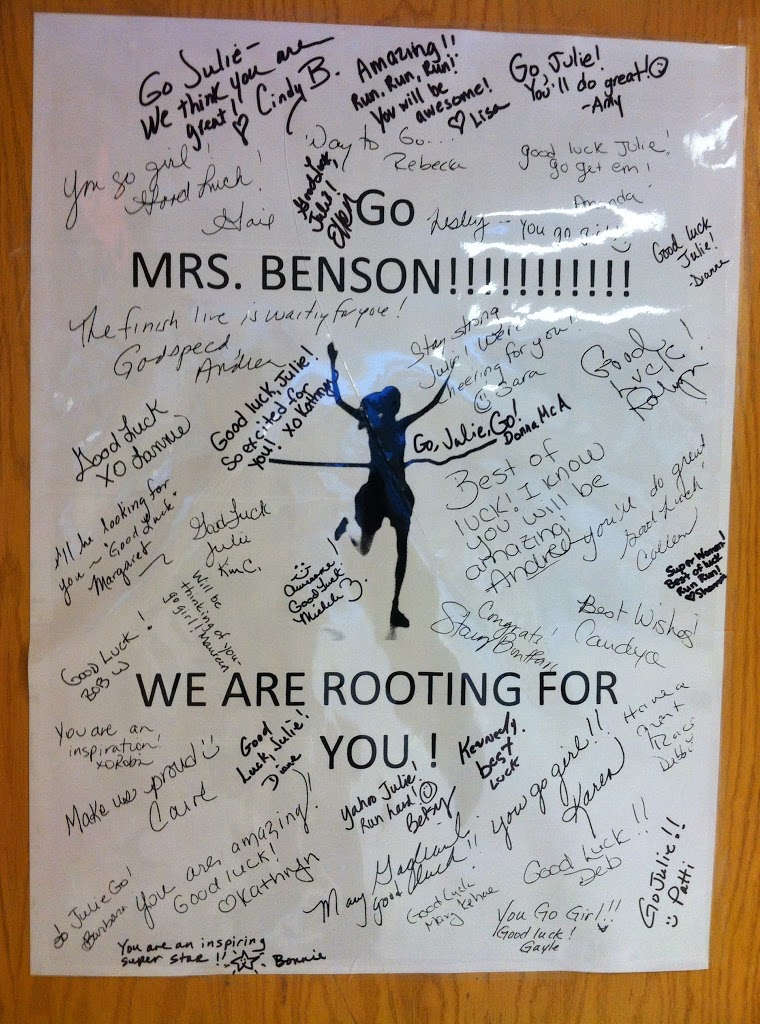 Go Julie-
We think you are
great!! ♡ Cindy B.
Amazing!!
Run, Run, Run!
You will be
awesome!
♡ Lisa
Go, Julie!
You'll do great! ☺
-Amy
You go girl!
Good Luck!
Gail
Way to Go...
Rebecca
good luck Julie!
go get em!
Amanda
Good Luck,
Julie!
Ellen
Go
Lesley -- You go girl
Good luck
Julie!
-Dianne
MRS. BENSON!!!!!!!!!!!!
The finish line is waiting for you!
Godspeed,
Andrea
Stay strong
Julie! We're
cheering for you!
☺ Sara
Good
luck!
Robyn
Good luck, Julie!
So excited for
you! XO Kathryn
Good Luck
XO Lannie
Go, Julie, Go!
Donna McA
Best of
luck! I know
you will be
amazing.
Andrea
you'll do great
Good Luck
Colleen
I'll be looking for
you ~ "Good Luck"
Margaret
Good Luck
Julie
Kim C.
☺ Awesome!
Good Luck
Michele B.
Super Woman!
Best of luck
Run Run!
♡ Shannon
Will be
thinking of you-
go girl!! Maureen
Good Luck!
Bob W
Congrats!
Stacy
Best Wishes!
Candyce
WE ARE ROOTING FOR
YOU !
You are an
inspiration!
xo Robin
Good
Luck, Julie!
Diane
Kennedy.
best
luck
Have a
great
Race
Debbi
Make us proud ☺
Carol
Yahoo Julie!
Run hard! ☺
Betsy
you go girl!!
Karen
You are amazing!
Good luck!
♡ Kathryn
Mary
good luck!!
Good Luck
Mary Kehoe
Good Luck!!
Deb
Go Julie!!
☺ Patti
Go Julie Go!
Barbara
You Go Girl!!
Good luck!
Gayle
You are an inspiring
super star!! ☆ - Bonnie